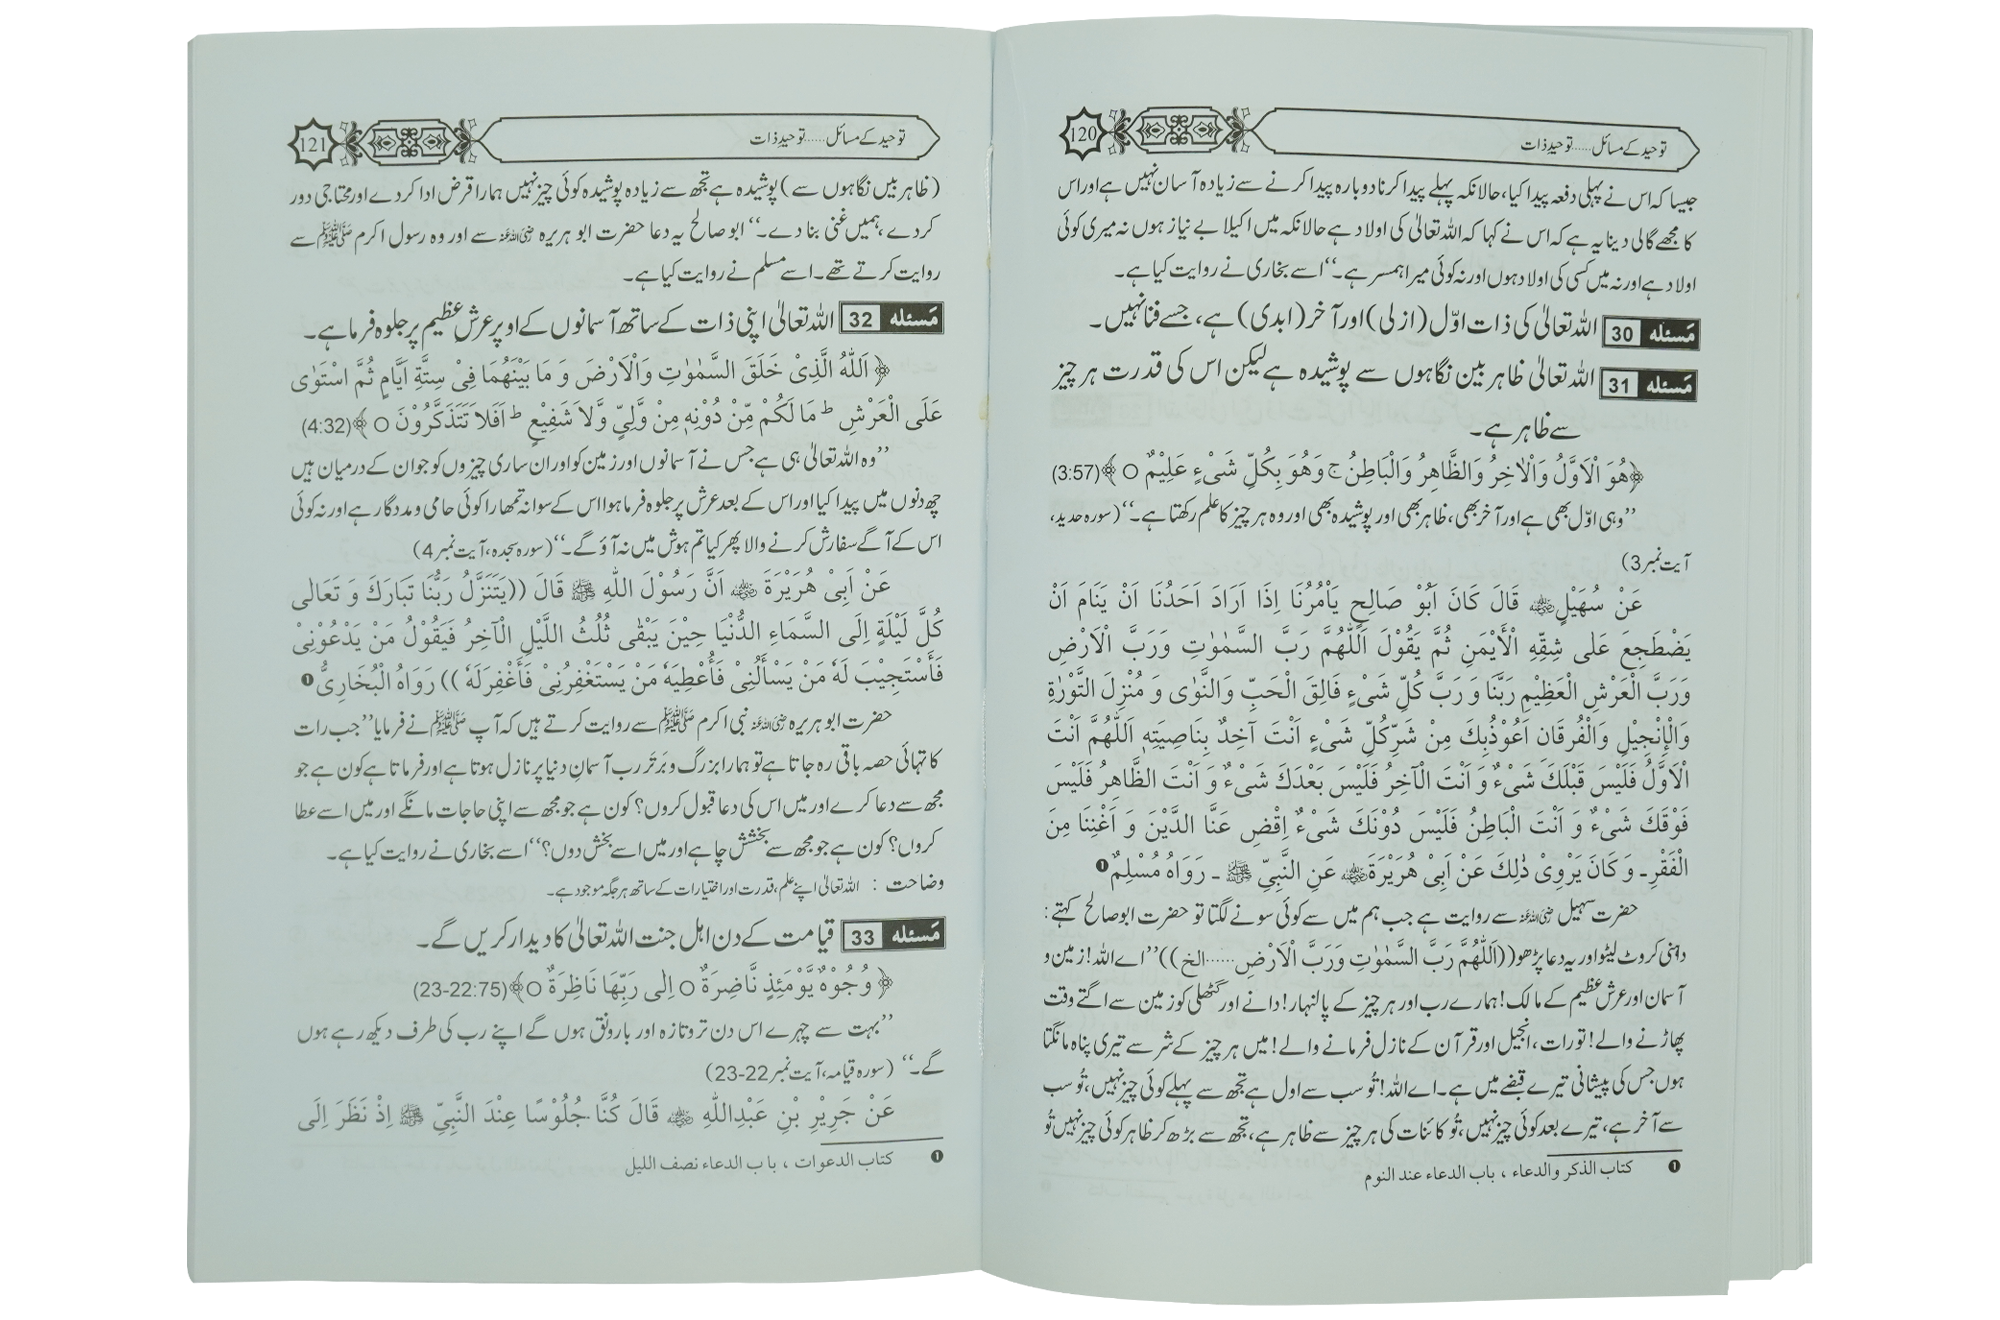 توحید کے مسائل.....توحیدِ ذات
120
جیسا کہ اس نے پہلی دفعہ پیدا کیا، حالانکہ پہلے پیدا کرنا دوبارہ پیدا کرنے سے زیادہ آسان نہیں ہے اور اس
کا مجھے گالی دینا یہ ہے کہ اس نے کہا کہ اللہ تعالیٰ کی اولاد ہے حالانکہ میں اکیلا بے نیاز ہوں نہ میری کوئی
اولاد ہے اور نہ میں کسی کی اولاد ہوں اور نہ کوئی میرا ہمسر ہے۔‘‘ اسے بخاری نے روایت کیا ہے۔
مَسئلہ 30 اللہ تعالیٰ کی ذات اوّل (ازلی) اور آخر (ابدی) ہے، جسے فنا نہیں۔
مَسئلہ 31 اللہ تعالیٰ ظاہر بین نگاہوں سے پوشیدہ ہے لیکن اس کی قدرت ہر چیز
سے ظاہر ہے۔
﴿هُوَ الْاَوَّلُ وَالْاٰخِرُ وَالظَّاهِرُ وَالْبَاطِنُ ج وَهُوَ بِكُلِّ شَیْءٍ عَلِیْمٌ ○ ﴾(3:57)
’’وہی اوّل بھی ہے اور آخر بھی، ظاہر بھی اور پوشیدہ بھی اور وہ ہر چیز کا علم رکھتا ہے۔‘‘ (سورہ حدید،
آیت نمبر 3)
عَنْ سُهَيْلٍ ؓ قَالَ كَانَ اَبُوْ صَالِحٍ يَأْمُرُنَا اِذَا اَرَادَ اَحَدُنَا اَنْ يَنَامَ اَنْ
يَضْطَجِعَ عَلٰى شِقِّهِ الْأَيْمَنِ ثُمَّ يَقُوْلَ اَللّٰهُمَّ رَبَّ السَّمٰوٰتِ وَرَبَّ الْاَرْضِ
وَرَبَّ الْعَرْشِ الْعَظِيْمِ رَبَّنَا وَ رَبَّ كُلِّ شَىْءٍ فَالِقَ الْحَبِّ وَالنَّوٰى وَ مُنْزِلَ التَّوْرٰةِ
وَالْاِنْجِيْلِ وَالْفُرْقَانِ اَعُوْذُبِكَ مِنْ شَرِّكُلِّ شَىْءٍ اَنْتَ آخِذٌ بِنَاصِيَتِهٖ اَللّٰهُمَّ اَنْتَ
الْاَوَّلُ فَلَيْسَ قَبْلَكَ شَىْءٌ وَ اَنْتَ الْآخِرُ فَلَيْسَ بَعْدَكَ شَىْءٌ وَ اَنْتَ الظَّاهِرُ فَلَيْسَ
فَوْقَكَ شَىْءٌ وَ اَنْتَ الْبَاطِنُ فَلَيْسَ دُوْنَكَ شَىْءٌ اِقْضِ عَنَّا الدَّيْنَ وَ اَغْنِنَا مِنَ
الْفَقْرِ۔ وَ كَانَ يَرْوِىْ ذٰلِكَ عَنْ اَبِىْ هُرَيْرَةَ ؓ عَنِ النَّبِيِّ ﷺ ۔ رَوَاهُ مُسْلِمٌ ❶
حضرت سہیل رضی اللہ عنہ سے روایت ہے جب ہم میں سے کوئی سونے لگتا تو حضرت ابو صالح کہتے:
داہنی کروٹ لیٹو اور یہ دعا پڑھو ((اَللّٰهُمَّ رَبَّ السَّمٰوٰتِ وَرَبَّ الْاَرْضِ......الخ))’’اے اللہ! زمین و
آسمان اور عرش عظیم کے مالک! ہمارے رب اور ہر چیز کے پالنہار! دانے اور گٹھلی کو زمین سے اگتے وقت
پھاڑنے والے! تورات، انجیل اور قرآن کے نازل فرمانے والے! میں ہر چیز کے شر سے تیری پناہ مانگتا
ہوں جس کی پیشانی تیرے قبضے میں ہے۔ اے اللہ! تُو سب سے اول ہے تجھ سے پہلے کوئی چیز نہیں، تُو سب
سے آخر ہے، تیرے بعد کوئی چیز نہیں، تُو کائنات کی ہر چیز سے ظاہر ہے، تجھ سے بڑھ کر ظاہر کوئی چیز نہیں تُو
❶ کتاب الذکر والدعاء ، باب الدعاء عند النوم
توحید کے مسائل.....توحیدِ ذات
121
(ظاہر بیں نگاہوں سے) پوشیدہ ہے تجھ سے زیادہ پوشیدہ کوئی چیز نہیں ہمارا قرض ادا کر دے اور محتاجی دور
کر دے، ہمیں غنی بنا دے۔‘‘ ابو صالح یہ دعا حضرت ابو ہریرہ رضی اللہ عنہ سے اور وہ رسول اکرم ﷺ سے
روایت کرتے تھے۔ اسے مسلم نے روایت کیا ہے۔
مَسئلہ 32 اللہ تعالیٰ اپنی ذات کے ساتھ آسمانوں کے اوپر عرشِ عظیم پر جلوہ فرما ہے۔
﴿ اَللّٰهُ الَّذِیْ خَلَقَ السَّمٰوٰتِ وَالْاَرْضَ وَ مَا بَيْنَهُمَا فِیْ سِتَّةِ اَيَّامٍ ثُمَّ اسْتَوٰى
عَلَى الْعَرْشِ ط مَا لَكُمْ مِّنْ دُوْنِهٖ مِنْ وَّلِيٍّ وَّلاَ شَفِيْعٍ ط اَفَلاَ تَتَذَكَّرُوْنَ ○ ﴾(4:32)
’’وہ اللہ تعالیٰ ہی ہے جس نے آسمانوں اور زمین کو اور ان ساری چیزوں کو جو ان کے درمیان ہیں
چھ دنوں میں پیدا کیا اور اس کے بعد عرش پر جلوہ فرما ہوا اس کے سوا نہ تمھارا کوئی حامی و مددگار ہے اور نہ کوئی
اس کے آگے سفارش کرنے والا پھر کیا تم ہوش میں نہ آؤ گے۔‘‘ (سورہ سجدہ، آیت نمبر 4)
عَنْ اَبِىْ هُرَيْرَةَ ؓ اَنَّ رَسُوْلَ اللهِ ﷺ قَالَ ((يَتَنَزَّلُ رَبُّنَا تَبَارَكَ وَ تَعَالٰى
كُلَّ لَيْلَةٍ اِلَى السَّمَاءِ الدُّنْيَا حِيْنَ يَبْقٰى ثُلُثُ اللَّيْلِ الْآخِرُ فَيَقُوْلُ مَنْ يَدْعُوْنِىْ
فَاَسْتَجِيْبَ لَهٗ مَنْ يَسْأَلُنِىْ فَأُعْطِيَهٗ مَنْ يَسْتَغْفِرُنِىْ فَأَغْفِرَلَهٗ )) رَوَاهُ الْبُخَارِىُّ ❶
حضرت ابو ہریرہ رضی اللہ عنہ نبی اکرم ﷺ سے روایت کرتے ہیں کہ آپ ﷺ نے فرمایا ’’جب رات
کا تہائی حصہ باقی رہ جاتا ہے تو ہمارا بزرگ و برتَر رب آسمانِ دنیا پر نازل ہوتا ہے اور فرماتا ہے کون ہے جو
مجھ سے دعا کرے اور میں اس کی دعا قبول کروں؟ کون ہے جو مجھ سے اپنی حاجات مانگے اور میں اسے عطا
کروں؟ کون ہے جو مجھ سے بخشش چاہے اور میں اسے بخش دوں؟‘‘ اسے بخاری نے روایت کیا ہے۔
وضاحت : اللہ تعالیٰ اپنے علم، قدرت اور اختیارات کے ساتھ ہر جگہ موجود ہے۔
مَسئلہ 33 قیامت کے دن اہل جنت اللہ تعالیٰ کا دیدار کریں گے۔
﴿ وُجُوْهٌ يَّوْمَئِذٍ نَّاضِرَةٌ ○ اِلٰى رَبِّهَا نَاظِرَةٌ ○﴾(22:75-23)
’’بہت سے چہرے اس دن تروتازہ اور بارونق ہوں گے اپنے رب کی طرف دیکھ رہے ہوں
گے۔‘‘ (سورہ قیامہ، آیت نمبر 22-23)
عَنْ جَرِيْرِ بْنِ عَبْدِاللهِ ؓ قَالَ كُنَّا جُلُوْسًا عِنْدَ النَّبِيِّ ﷺ اِذْ نَظَرَ اِلَى
❶ کتاب الدعوات ، باب الدعاء نصف اللیل